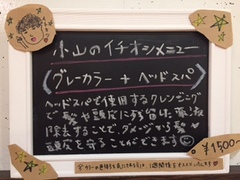 小山のイチオシメニュー
(グレーカラー + ヘッドスパ)
ヘッドスパで使用するクレンジング
で髪や頭皮に残留した薬液
除去することで ダメージから髪
頭皮を守ることができます☺
¥1500~